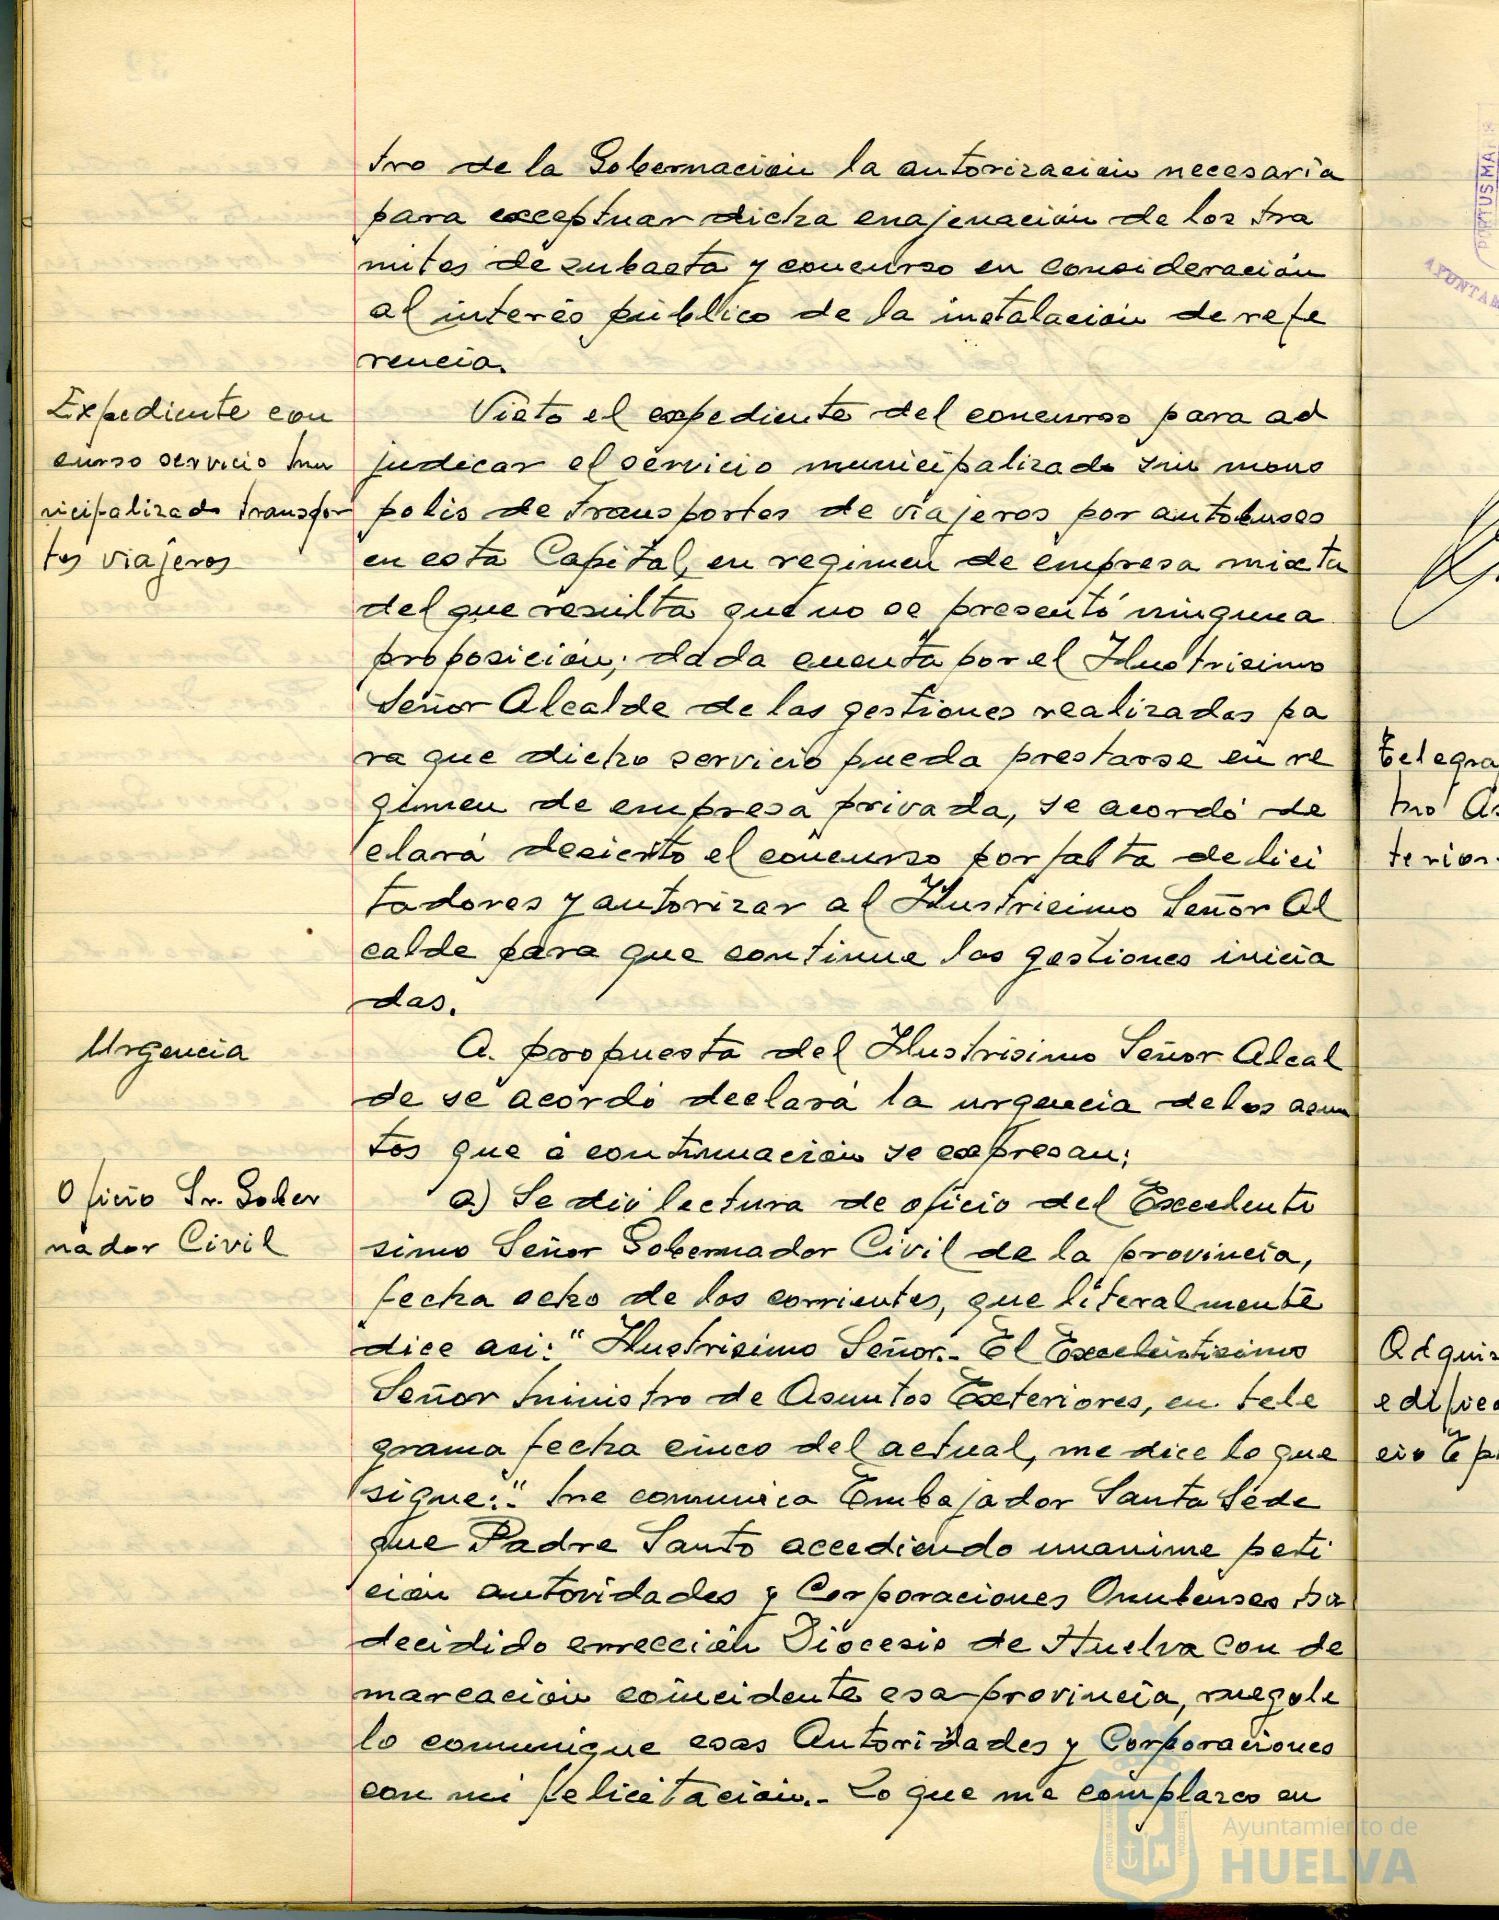 tro de la Gobernación la autorización necesaria
para exceptuar dicha enajenación de los tra
mites de subasta y concurso en consideración
al interés público de la instalación de refe
rencia.
Expediente con
curso servicio mu
nicipalizado transpor
tes viajeros
Visto el expediente del concurso para ad
judicar el servicio municipalizado sin mono
polio de transportes de viajeros por autobuses
en esta Capital, en regimen de empresa mixta
del que resulta que no se presentó ninguna
proposición; dada cuenta por el Ilustrisimo
Señor Alcalde de las gestiones realizadas pa
ra que dicho servicio pueda prestarse en re
gimen de empresa privada, se acordó de
clará desierto el concurso por falta de lici
tadores y autorizar al Ilustrisimo Señor Al
calde para que continue las gestiones inicia
das.
Urgencia
A propuesta del Ilustrisimo Señor Alcal
de se acordó declará la urgencia de los asun
tos que a continuación se expresan:
Oficio Sr. Gober
nador Civil
a) Se dió lectura de oficio del Excelenti
simo Señor Gobernador Civil de la provincia,
fecha ocho de los corrientes, que literalmente
dice asi: "Ilustrisimo Señor.- El Excelentisimo
Señor Ministro de Asuntos Exteriores, en tele
grama fecha cinco del actual, me dice lo que
sigue:" Me comunica Embajador Santa Sede
que Padre Santo accediendo unanime peti
ción autoridades y Corporaciones Onubenses ha
decidido errección Diocesis de Huelva con de
marcación coincidente esa provincia, ruegole
lo comunique esas Autoridades y Corporaciones
con mi felicitación.- Lo que me complazco en
PORTUS MARIS
AYUNTAM
Telegra
mo As
terior
Adquis
edific
cio Ep
Ayuntamiento de
HUELVA